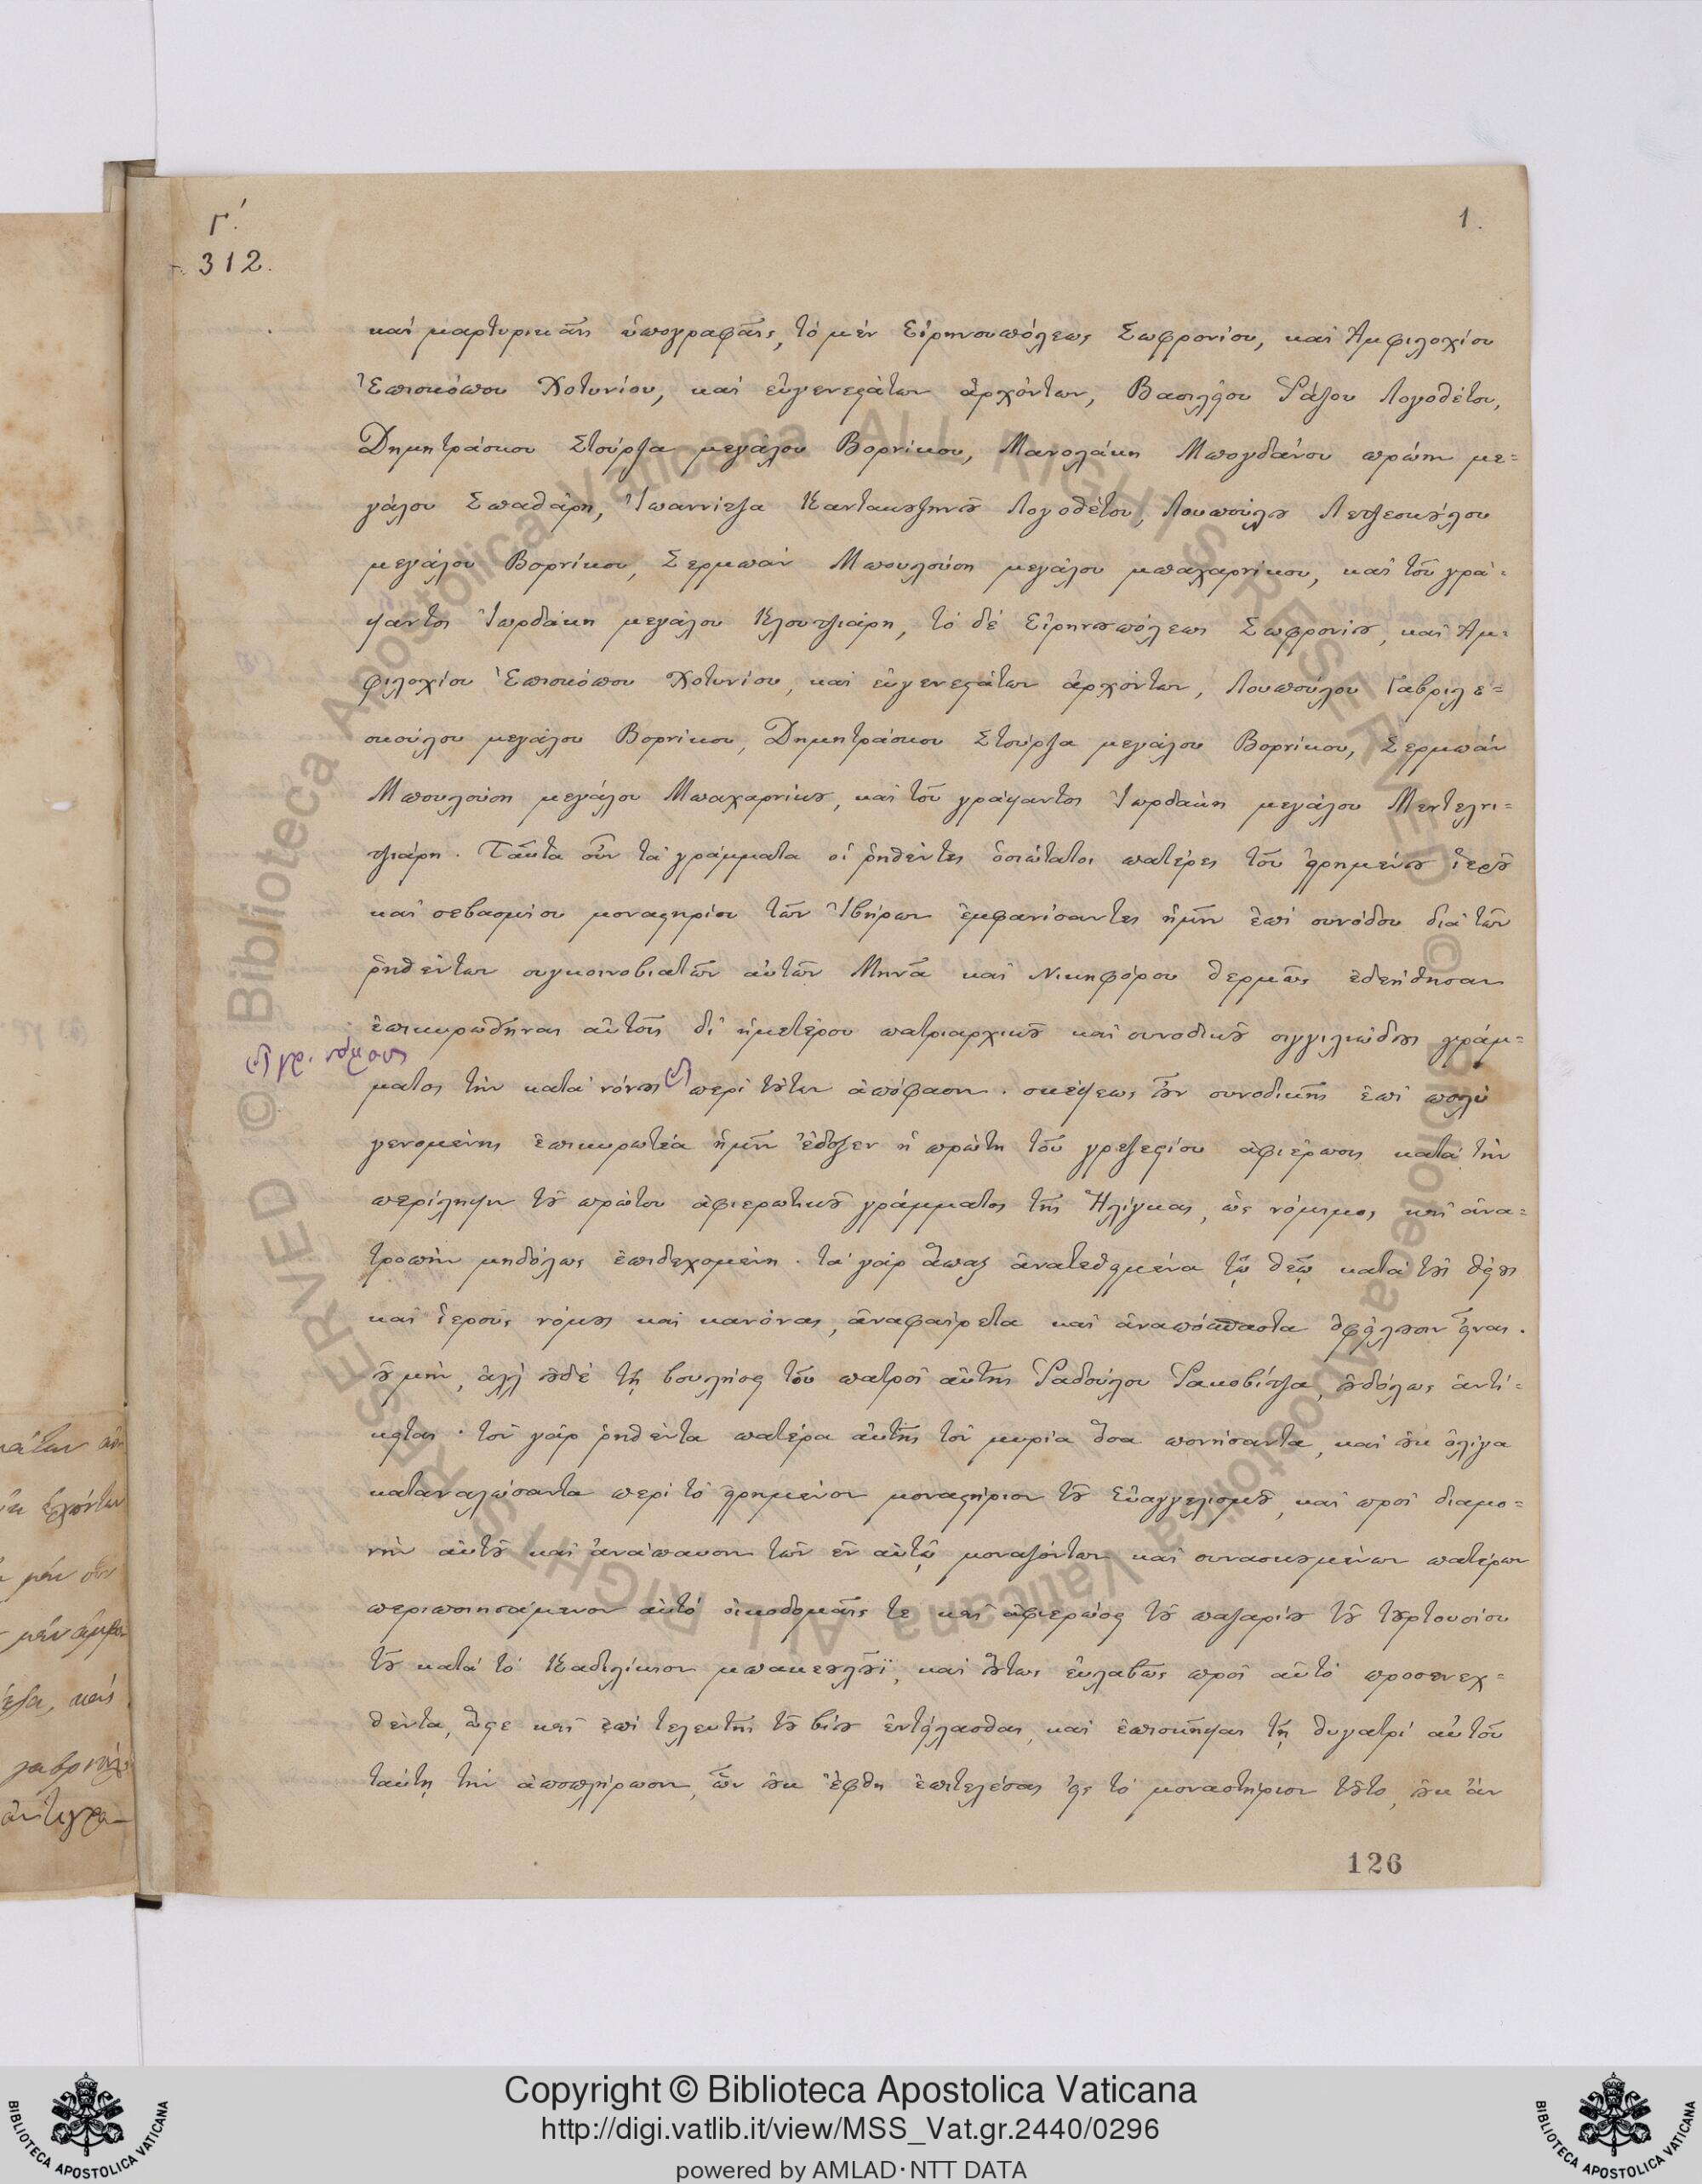 Γ΄.
312.
1.
καὶ μαρτυρικαῖς ὑπογραφαῖς, τὸ μὲν Εἰρηνουπόλεως Σωφρονίου, καὶ Ἀμφιλοχίου
Ἐπισκόπου Χοτινίου, καὶ εὐγενεστάτων ἀρχόντων, Βασιλείου Ῥάζου Λογοθέτου,
Δημητράσκου Στούρζα μεγάλου Βορνίκου, Μανολάκη Μπογδάνου πρώην με=
γάλου Σπαθάρη, Ἰωαννίτζα Καντακȣζηνȣ Λογοθέτου, Λουπούλȣ
μεγάλου Βορνίκου, Σερμπὰν Μπουλούση μεγάλου μπαχαρνίκου, καὶ τοῦ γρά=
ψαντος Ἰορδάκη μεγάλου Κλουτζιάρη, τὸ δὲ Εἰρηνȣπόλεως Σωφρονίȣ, καὶ Ἀμ=
φιλοχίου Ἐπισκόπου Χοτινίου, καὶ εὐγενεστάτων ἀρχόντων, Λουπούλου Γαβριλε=
σκούλου μεγάλου Βορνίκου, Δημητράσκου Στούρζα μεγάλου Βορνίκου, Σερμπὰν
Μπουλούση μεγάλου Μπαχαρνίκȣ, καὶ τοῦ γράψαντος Ἰορδάκη μεγάλου Μεντελνι=
τζιάρη. Ταῦτα οὖν τὰ γράμματα οἱ ῥηθέντες ὁσιώτατοι πατέρες τοῦ εἰρημένȣ ἱερȣ
καὶ σεβασμίου μοναστηρίου τῶν Ἰβήρων ἐμφανίσαντες ἡμῖν ἐπὶ συνόδου διὰ τῶν
ῥηθέντων συγκοινοβιατῶν αὐτῶν Μηνᾶ καὶ Νικηφόρου θερμῶς ἐδεήθησαν
ἐπικυρωθῆναι αὐτοῖς δι' ἡμετέρου πατριαρχικȣ καὶ συνοδικȣ σιγγιλιώδȣς γράμ=
γρ. νόμους
ματος τὴν κατὰ νόνȣς περὶ τȣτων ἀπόφασιν. σκέψεως ȣν συνοδικῆς ἐπὶ πολὺ
γενομένης ἐπικυρωτέα ἡμῖν ἔδοξεν ἡ πρώτη τοῦ γρεζεστίου ἀφιέρωσις κατὰ τὴν
περίληψιν τȣ πρώτου ἀφιερωτικȣ γράμματος τῆς Ἠλίγκας, ὡς νόμιμος καὶ ἀνα=
τροπὴν μηδόλως ἐπιδεχομένη. τὰ γὰρ ἅπαξ ἀνατεθειμένα τῷ θεῷ κατὰ τȣς θείȣς
καὶ ἱεροὺς νόμȣς καὶ κανόνας, ἀναφαίρετα καὶ ἀναπόσπαστα ὀφείλȣσιν εἶναι.
ȣ μὴν, ἀλλ' ȣδὲ τῇ βουλήσει τοῦ πατρὸς αὐτῆς Ῥαδούλου Ῥακοβίτζα, ȣδόλως ἀντί=
κειται. τὸν γὰρ ῥηθέντα πατέρα αὐτῆς τὸν μυρία ὅσα πονήσαντα, καὶ ȣκ ὀλίγα
καταναλώσαντα περὶ τὸ εἰρημένον μοναστήριον τȣ Εὐαγγελισμȣ, καὶ πρὸς διαμο=
νὴν αὐτȣ καὶ ἀνάπαυσιν τῶν ἐν αὐτῷ μοναζόντων καὶ συνασκȣμένων πατέρων
περιποιησάμενον αὐτὸ οἰκοδομαῖς τε καὶ ἀφιερώσει τȣ παζαρίȣ τȣ τȣρτουσίου
τȣ κατὰ τὸ Καδιλίκιον μπακεȣλȣϊ, καὶ ȣτως εὐλαβῶς πρὸς αὐτὸ προσενεχ=
θέντα, ὥστε καὶ ἐπὶ τελευτῆς τȣ βίȣ ἐντείλασθαι, καὶ ἐπισκῆψαι τῇ θυγατρὶ αὐτοῦ
ταύτῃ τὴν ἀποπλήρωσιν, ὧν ȣκ ἔφθη ἐπιτελέσας εἰς τὸ μοναστήριον τȣτο, ȣκ ἂν
126
Copyright © Biblioteca Apostolica Vaticana
http://digi.vatlib.it/view/MSS_Vat.gr.2440/0296
powered by AMLAD·NTT DATA